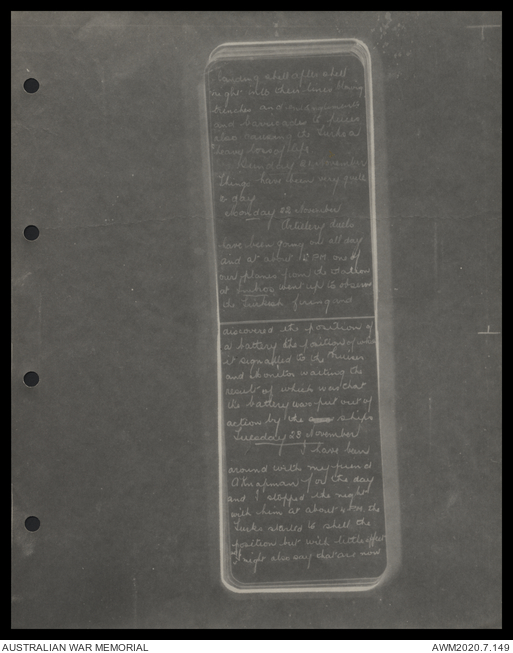 landing shell after shell
right into their lines blowing
trenches and
and barricades to pieces
also causing the Turks a
heavy loss of life
Sunday 21 November
Things have been very quite
to day
Monday 22 November
Artillery duels
have been going on all day
and at about 12 P.M. one of
our planes from the station
at went up to observe
the Turkish firing and
discovered the position of
a battery the position of which
it signalled to the Cruiser
and Monitor waiting the
result of which was that
the battery was put out of
action by the ships
Tuesday 23 November
I have been
around with my friend
Chapman for the day
and I stopped the night
with him at about 4 P.M. the
Turks started to shell the
position but with little effect
I might also say that are now
AUSTRALIAN WAR MEMORIAL
AWM2020.7.149